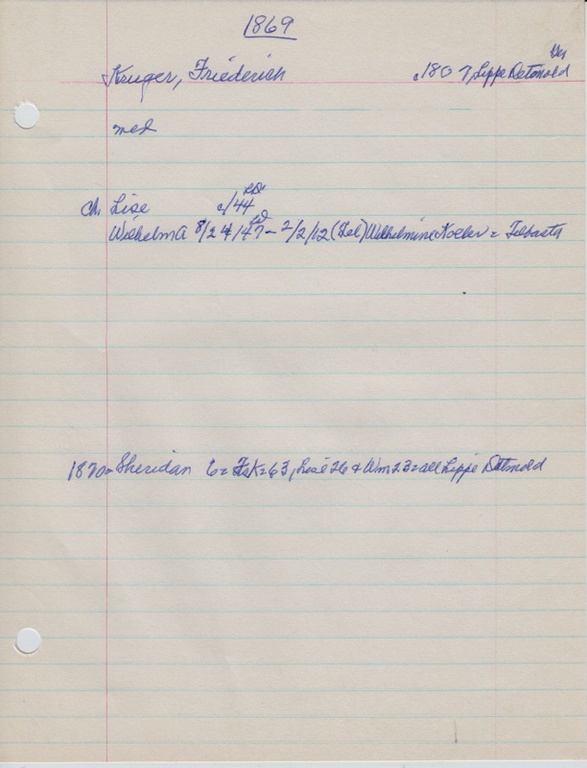 1869
Kruger, Friederich c1807, Lippe Detmold Ger
med
ch. Lise c/44 LD
Wilhelm A 8/24/47 LD - 2/2/12 (Fel) Wilhelmine Koeller =
1870 = Sheridan 62 = 63, Lise 26 & Wm 23 = all Lippe Detmold